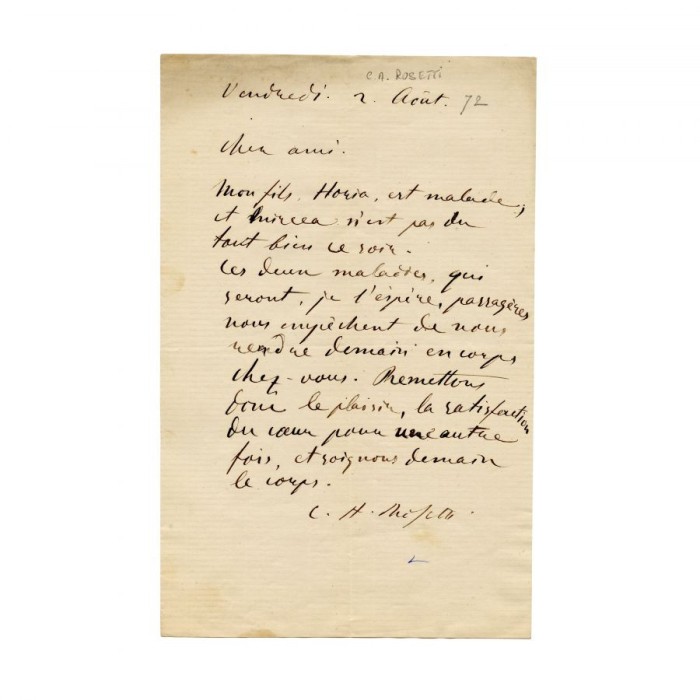 C.A. ROSETTI
Vendredi. 2. Août. 72
Cher ami.
Mon fils, Horia, est malade,
et Mircea n'est pas du
tout bien ce soir.
Ces deux maladies, qui
seront, je l'éspère, passagères
nous empêchent de nous
rendre demain en corps
chez-vous. Remettons
donc le plaisir, la satisfaction
du cœur pour une autre
fois, et soignons demain
le corps.
C. A. Rosetti